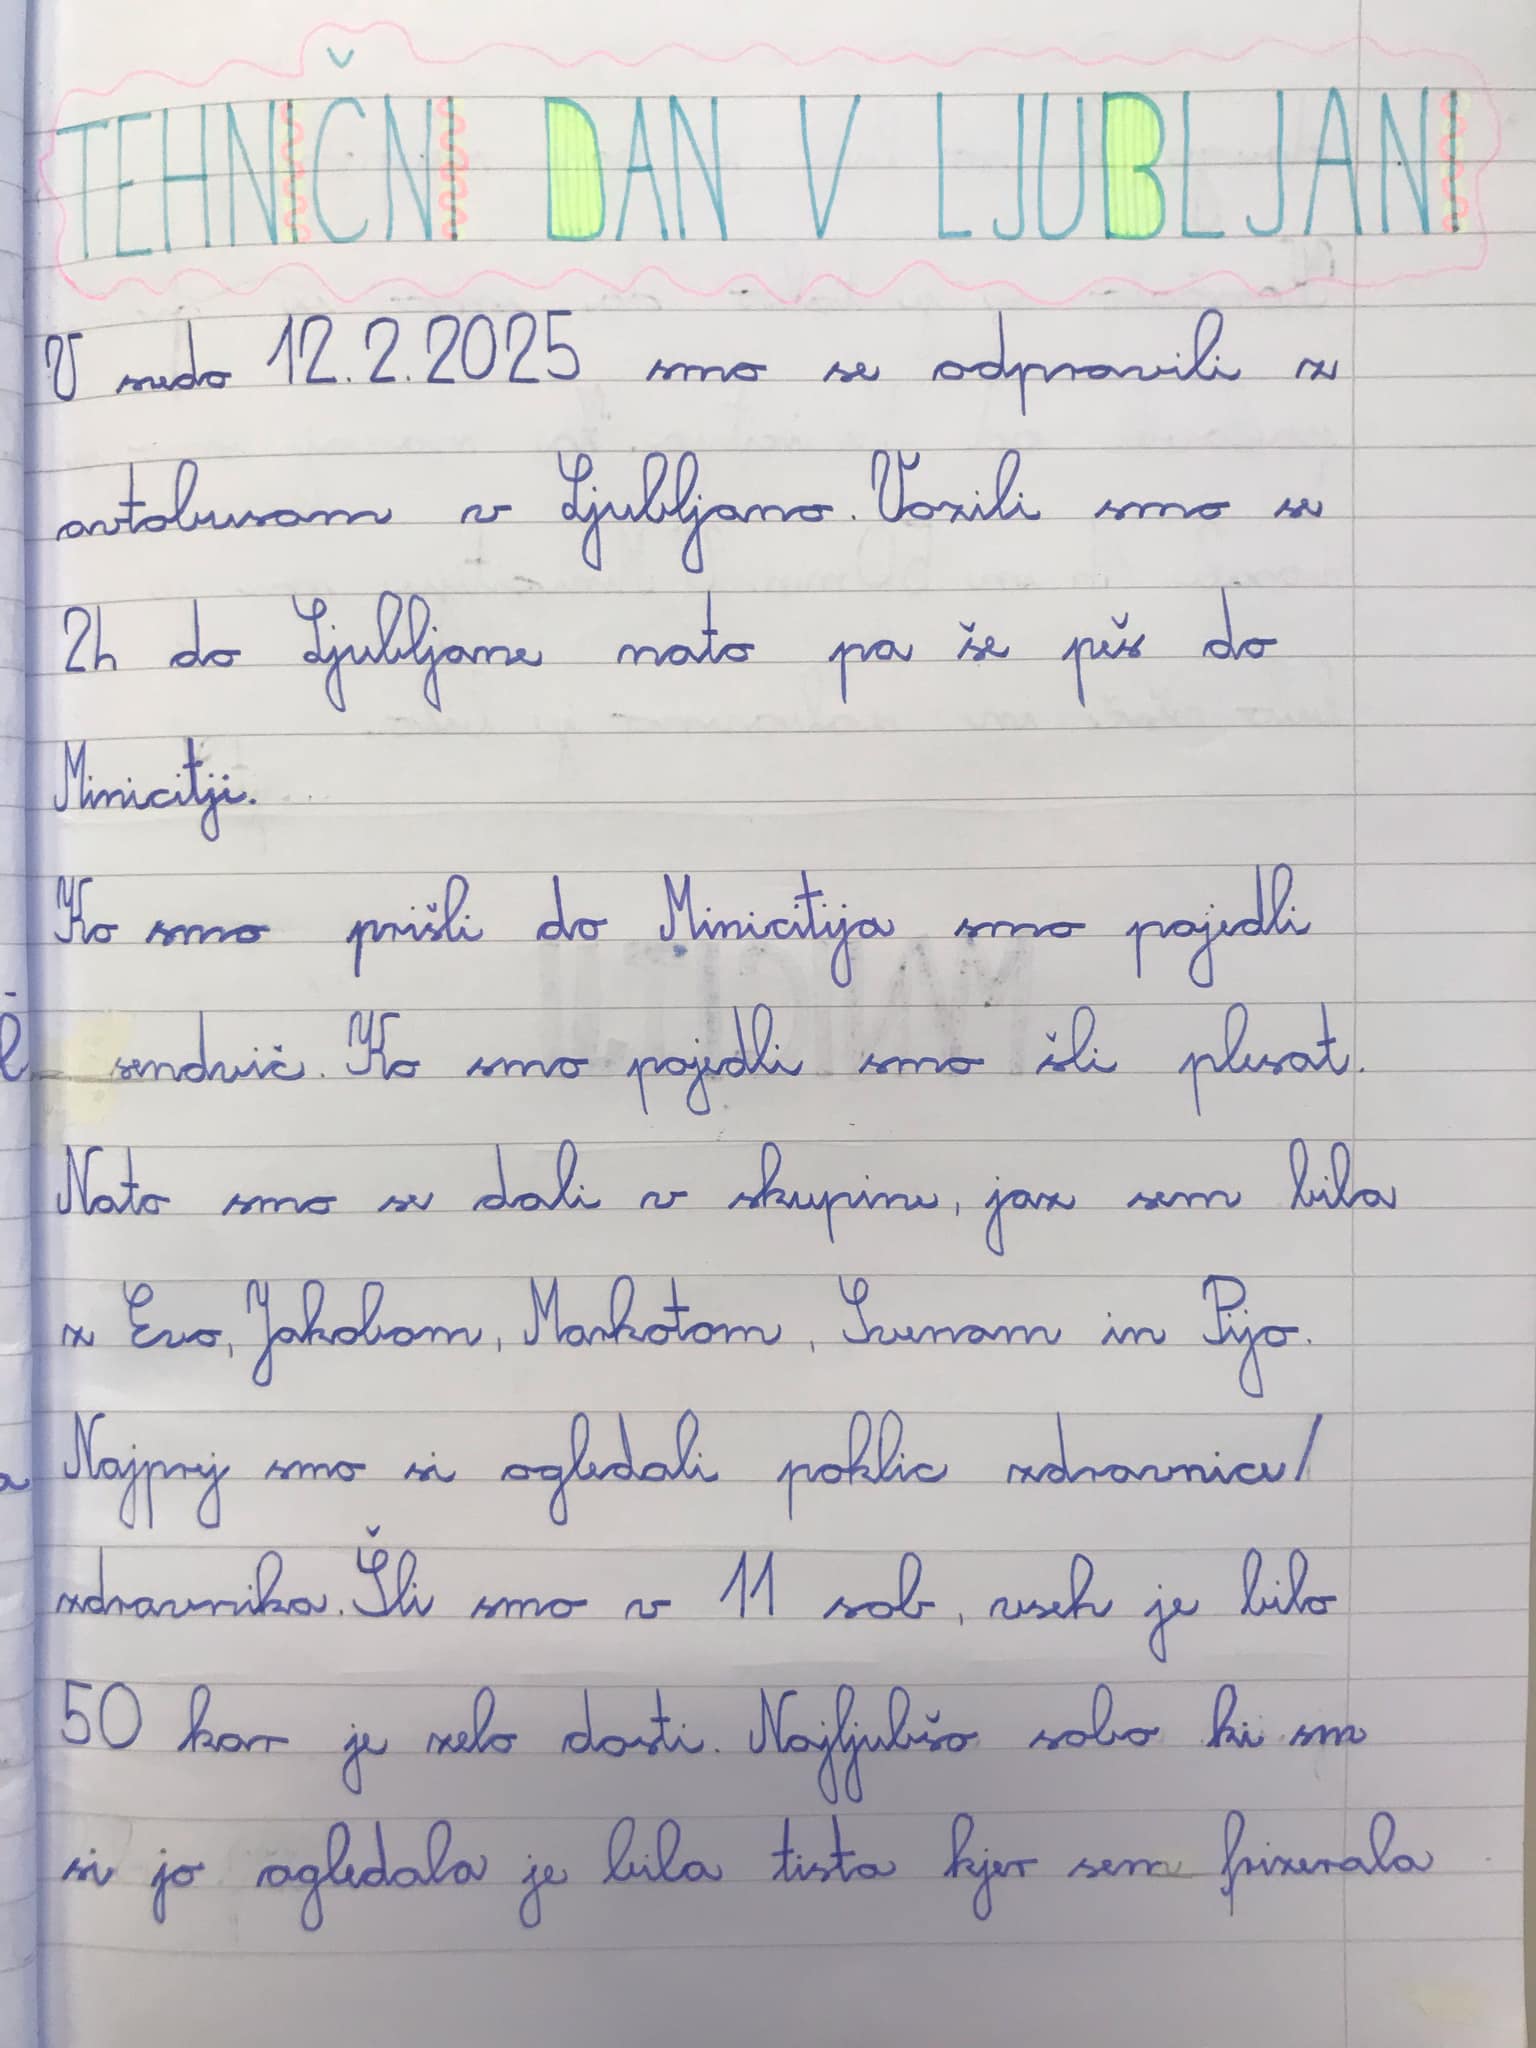 TEHNIČNI DAN V LJUBLJANI
V sredo 12.2.2025 smo se odpravili z
avtobusom v Ljubljano. Vozili smo se
2h do Ljubljane nato pa še peš do
Minicitji.
Ko smo prišli do Minicitija smo pojedli
sendvič. Ko smo pojedli smo šli plesat.
Nato smo se dali v skupine, jaz sem bila
z Evo, Jakobom, Markotom, Svenom in Pijo.
Najprej smo si ogledali poklic zdravnice/
zdravnika. Šli smo v 11 sob, vseh je bilo
50 kar je zelo dosti. Najljubšo sobo ki sm
si jo ogledala je bila tista kjer sem frizerala